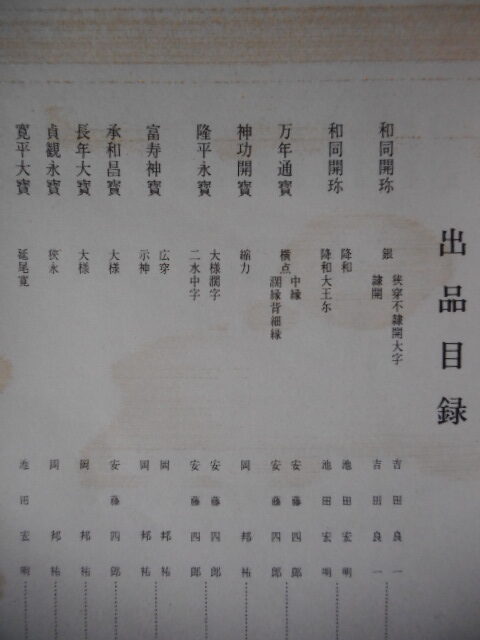 出品目録
和同開珎 銀 狭穿不隷開大字 吉田良一
隷開 吉田良一
和同開珎 降和 池田宏明
降和大王尓 池田宏明
万年通寶 中縁 安藤四郎
横点 濶縁背細縁 安藤四郎
神功開寶 縮力 岡邦祐
隆平永寶 大様濶字 安藤四郎
二水中字 安藤四郎
富寿神寶 広穿 岡邦祐
示神 岡邦祐
承和昌寶 大様 安藤四郎
長年大寶 大様 岡邦祐
貞観永寶 狭永 岡邦祐
寛平大寶 延尾寛 池田宏明